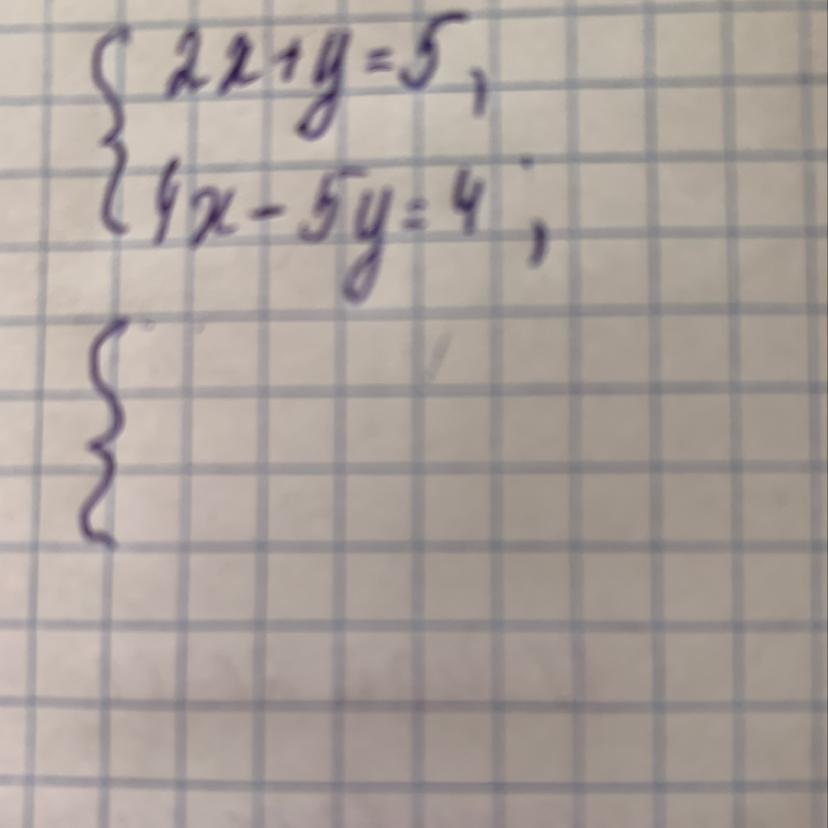 { 2x+y=5,
4x-5y=4;
{